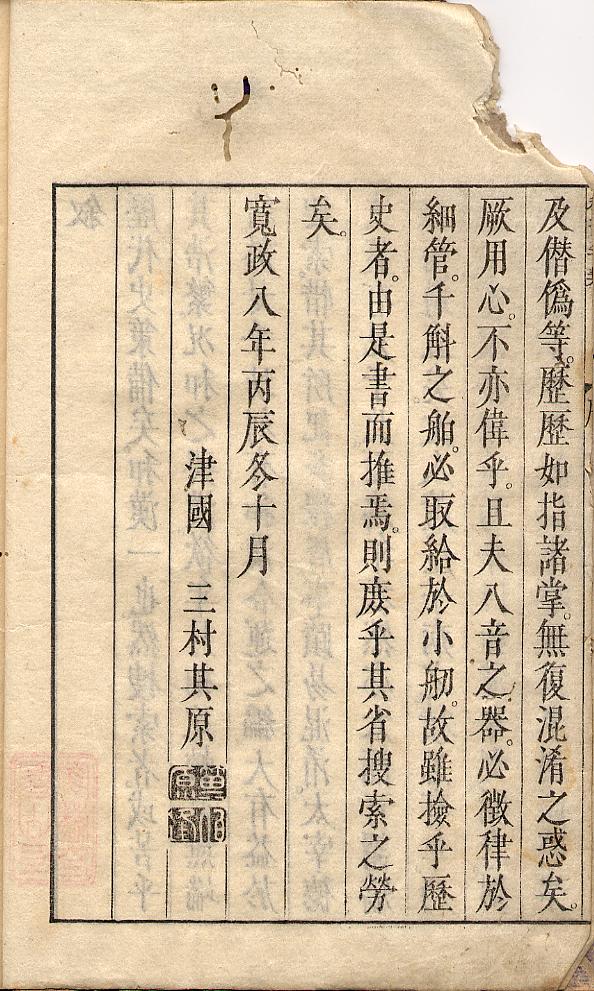 及僣僞等。歷歷如指諸掌。無復混淆之惑矣。
厥用心。不亦偉乎。且夫八音之器。必徵律於
細管。千斛之舶。必取給於小舠。故雖撿乎歷
史者。由是書而推焉。則庻乎其省搜索之勞
矣。
寬政八年丙辰冬十月
津國 三村其原